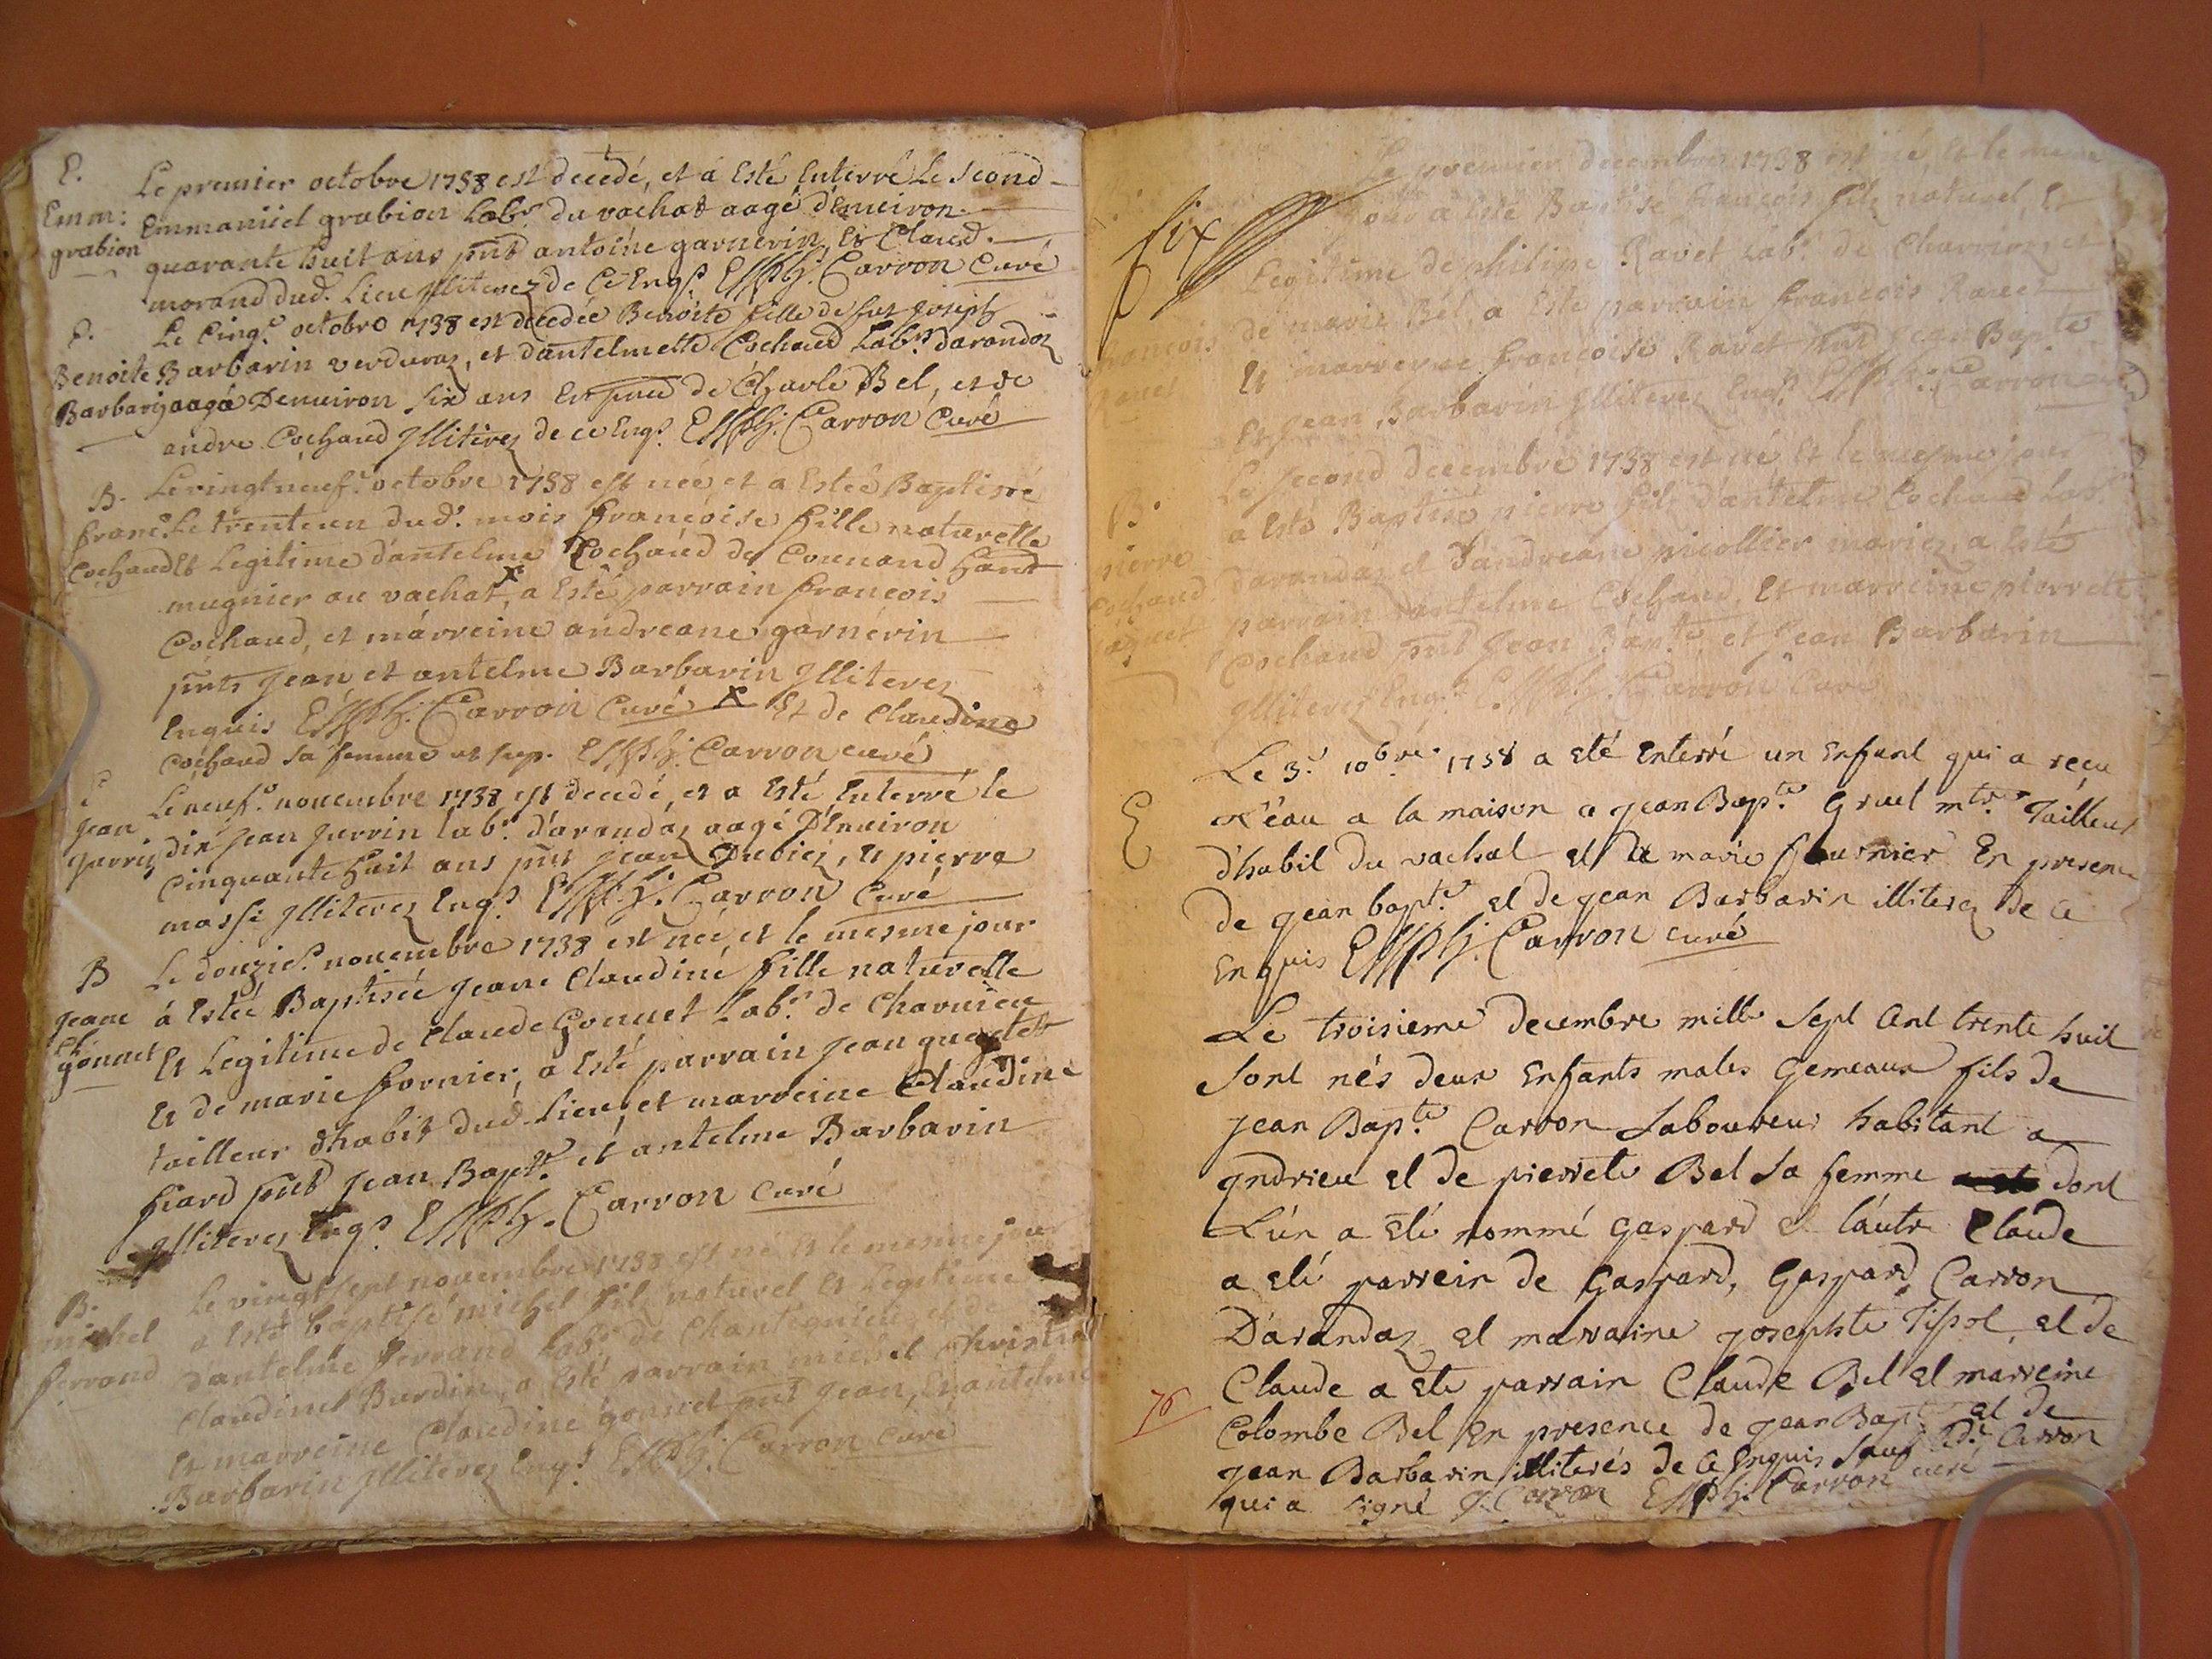 E. Le premier octobre 1738 est decedé, et á Esté Enterré Le second
Emm: Emmanüel grabion Lab.r du vachat aagé d'Enuiron
grabion quarante huit ans pnt antoine garnerin, et Claud.
morand dud. Lieu Illiterez de ce Enq.s Carron Curé
E. Le Cinq.e octobre 1738 est decedée Benoite fille de fut Joseph
Benoite Barbarin verduraz, et dantelmette Cochaud Lab.rs darandaz
Barbarin aagée Denuiron six ans En pnce de Charle Bel, et de
andre Cochaud Illiterez de ce Enq.s Carron Curé
B. Le vingt neuf.e octobre 1738 est née et a Estée Baptisée
franc.e Le trente un dud. mois françoise fille naturelle
Cochaud Et Legitime d'antelme Cochaud de Connand hant
mugnier au vachat, x a Esté parrain francois
Cochaud, et marreine andreane garnerin
pnts Jean et antelme Barbarin Illiterez
Enquis Carron Curé x Et de Claudine
Cochaud sa femme ut sup. Carron curé
E Le neuf.e nouembre 1738 est decedé, et a Esté Enterré le
Jean dix Jean Jurrin lab.r d'arandaz aagé D'Enuiron
Cinquante huit ans pnt Jean Dubiez, et pierre
massi Illiterez Enq.s Carron Curé
B Le douzie.e nouembre 1738 est née, et le mesme jour
Jeane á Estée Baptisée Jeane Claudine fille naturelle
Cl. gonnet Et Legitime de Claude Gonnet Lab.r de Charuieu
Et de marie fornier, a Esté parrain Jean
tailleur dhabit dud. Lieu, et marreine Claudine
fiard pnt Jean Bapt.e et antelme Barbarin
Illiterez Enq.s Carron Curé
B. Le vingt sept nouembre 1738 est né et le mesme jour
michel a Esté baptisé michel fils naturel Et Legitime
ferrand Dantelme ferrand Lab.r de Chantignieu et de
Claudine Burdin, a Esté parrain michel
Et marreine Claudine gonnet pnt Jean, Et antelme
Barbarin Illiterez Enq.s Carron curé
Le premier decembre 1738 est né Et le mesme
jour a Esté Baptisé francois fils naturel, Et
Legitime de philippe Ravet Lab.r de Charvieu et
francois de marie Bel, a Esté parrain francois Ravet
Ravet Et marreyne francoise Ravet pnt Jean Bapte
Et Jean Barbarin Illiterez Enq.s Carron
Le second decembre 1738 est né Et le mesme jour
B. a Esté Baptisé pierre fils d'antelme Cochaud Lab.r
pierre darandaz et d'andreane picollier mariez, a Esté
Cochaud parrain dantelme Cochaud, Et marreine pierrete
Cochaud pnt Jean Bapte. et Jean Barbarin
Illiterez Enq.s Carron Curé
Le 3.e 10bre. 1738 a eté Enterré un Enfant qui a reçu
E L'eau a la maison a Jean Bap.te Gruel mtre. Tailleur
d'habil du vachat et de marie fournier En presence
de Jean bapt.e et de Jean Barbarin illiterez de ce
Enquis Carron curé
Le troisieme decembre mille Sept Cent trente huit
Sont nés deux Enfants males Gemeaux fils de
Jean Bap.te Carron Laboureur habitant a
Indrieu et de pierrete Bel Sa femme dont
L'un a Eté nommé Gaspard et l'autre Claude
a eté parrein de Gaspard, Gaspard Carron
D'arandaz et marraine Josephte Tissot, et de
Claude a eté parrain Claude Bel et marreine
76 Colombe Bel En presence de Jean Bapte et de
Jean Barbarin illiterés de ce Enquis Sauf Carron
qui a signé G. Carron Carron curé